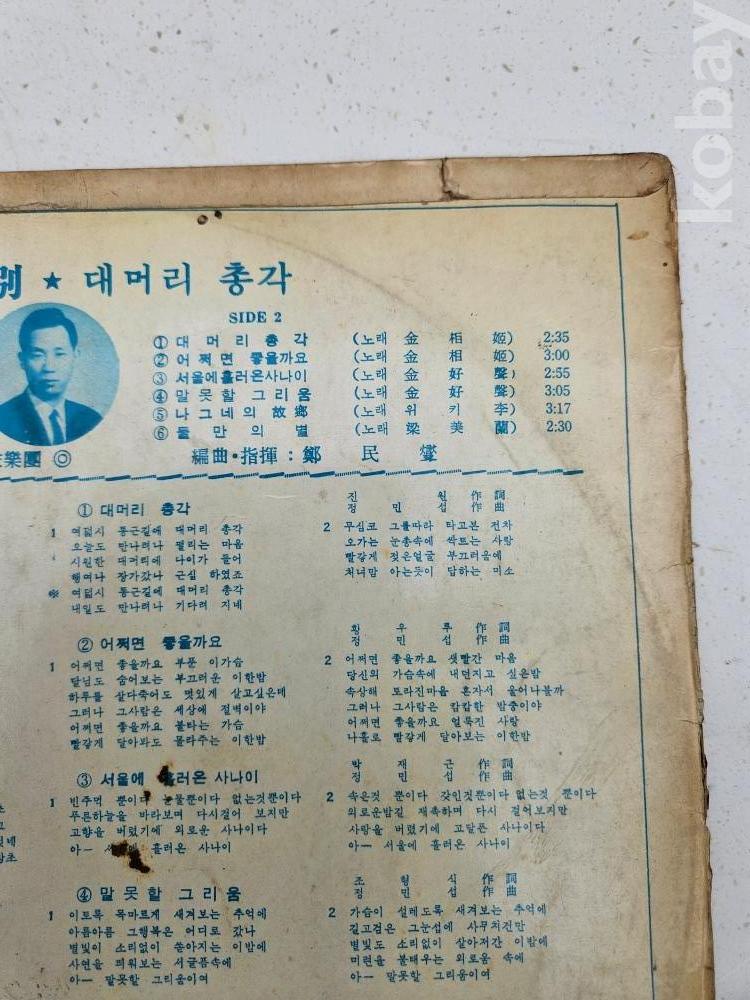 kobay
別 ★ 대머리 총각
SIDE 2
① 대머리총각 (노래 金相姬) 2:35
② 어쩌면 좋을까요 (노래 金相姬) 3:00
③ 서울에흘러온사나이 (노래 金好聲) 2:55
④ 말못할그리움 (노래 金好聲) 3:05
⑤ 나그네의 故鄕 (노래 위키李) 3:17
⑥ 둘만의별 (노래 梁美蘭) 2:30
樂團 ◎ 編曲·指揮: 鄭民燮
① 대머리 총각
진원 作詞
정민섭 作曲
1 여덟시 통근길에 대머리 총각
오늘도 만나려나 떨리는 마음
시원한 대머리에 나이가 들어
행여나 장가갔나 근심 하였죠
※ 여덟시 통근길에 대머리 총각
내일도 만나려나 기다려 지네
2 무심코 그를따라 타고본 전차
오가는 눈총속에 싹트는 사랑
빨갛게 젖은얼굴 부끄러움에
처녀맘 아는듯이 답하는 미소
② 어쩌면 좋을까요
황우루 作詞
정민섭 作曲
1 어쩌면 좋을까요 부푼 이가슴
달님도 숨어보는 부끄러운 이한밤
하루를 살다죽어도 멋있게 살고싶은데
그러나 그사람은 세상에 절벽이야
어쩌면 좋을까요 불타는 가슴
빨갛게 달아봐도 몰라주는 이한밤
2 어쩌면 좋을까요 샛빨간 마음
당신의 가슴속에 내던지고 싶은밤
속상해 토라진마음 혼자서 울어나볼까
그러나 그사람은 캄캄한 밤중이야
어쩌면 좋을까요 얼룩진 사랑
나홀로 빨갛게 달아보는 이한밤
③ 서울에 흘러온 사나이
박재근 作詞
정민섭 作曲
1 빈주먹 뿐이다 눈물뿐이다 없는것뿐이다
푸른하늘을 바라보며 다시걸어 보지만
고향을 버렸기에 외로운 사나이다
아ー 서울에 흘러온 사나이
2 속은것 뿐이다 갖인것뿐이다 없는것 뿐이다
외로운밤길 재촉하며 다시 걸어보지만
사랑을 버렸기에 고달픈 사나이다
아ー 서울에 흘러온 사나이
④ 말못할 그리움
조형식 作詞
정민섭 作曲
1 이토록 목마르게 새겨보는 추억에
아름아름 그행복은 어디로 갔나
별빛이 소리없이 쏟아지는 이밤에
사연을 띄워보는 서글픔속에
아ー 말못할 그리움이여
2 가슴이 설레도록 새겨보는 추억에
길고검은 그눈섭에 사무치건만
별빛도 소리없이 살아져간 이밤에
미련을 불태우는 외로움 속에
아ー 말못할 그리움이여